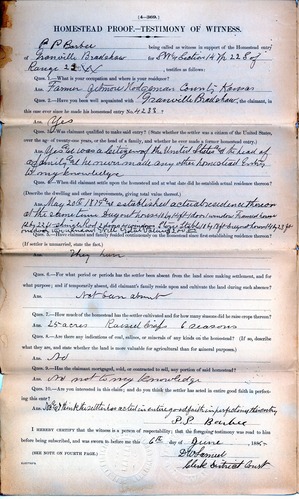 (4—369.)
HOMESTEAD PROOF.—TESTIMONY OF WITNESS.
P P Barbee being called as witness in support of the Homestead entry
of Granville Bradshaw for Section 14 T 22 S of
Range 22 testifies as follows:
Ques. 1.—What is your occupation and where is your residence?
Ans. Farmer Hodgeman County, Kansas
Ques. 2.—Have you been well acquainted with Granville Bradshaw, the claimant, in
this case ever since he made his homestead entry No 4238.?
Ans. Yes
Ques. 3.—Was claimant qualified to make said entry? (State whether the settler was a citizen of the United States,
over the age of twenty-one years, or the head of a family, and whether he ever made a former homestead entry.)
Ans. Yes he was a citizen of the United States & the head of
a family & he never made any other homestead Entry
to my knowledge
Ques. 4.—When did claimant settle upon the homestead and at what date did he establish actual residence thereon?
(Describe the dwelling and other improvements, giving total value thereof.)
Ans. May 20th & established actual residence thereon
at the same time
Ques. 5.—Have claimant and family resided continuously on the homestead since first establishing residence thereon?
(If settler is unmarried, state the fact.)
Ans. They have
Ques. 6.—For what period or periods has the settler been absent from the land since making settlement, and for
what purpose; and if temporarily absent, did claimant's family reside upon and cultivate the land during such absence?
Ans. Not been absent
Ques. 7.—How much of the homestead has the settler cultivated and for how many seasons did he raise crops thereon?
Ans. 25 acres Raised Crops 6 seasons
Ques. 8.—Are there any indications of coal, salines, or minerals of any kinds on the homestead? (If so, describe
what they are, and state whether the land is more valuable for agricultural than for mineral purposes.)
Ans. No
Ques. 9.—Has the claimant mortgaged, sold, or contracted to sell, any portion of said homestead?
Ans. No not to my knowledge
Ques. 10.—Are you interested in this claim; and do you think the settler has acted in entire good faith in perfect-
ing this entry?
Ans. No & I think the settler has acted in entire good faith in perfecting this entry
P. P. Barbee
I HEREBY CERTIFY that the witness is a person of respectability, that the foregoing testimony was read to him
before being subscribed, and was sworn to before me this 6th day of June, 188
(SEE NOTE ON FOURTH PAGE.)
Clerk District Court